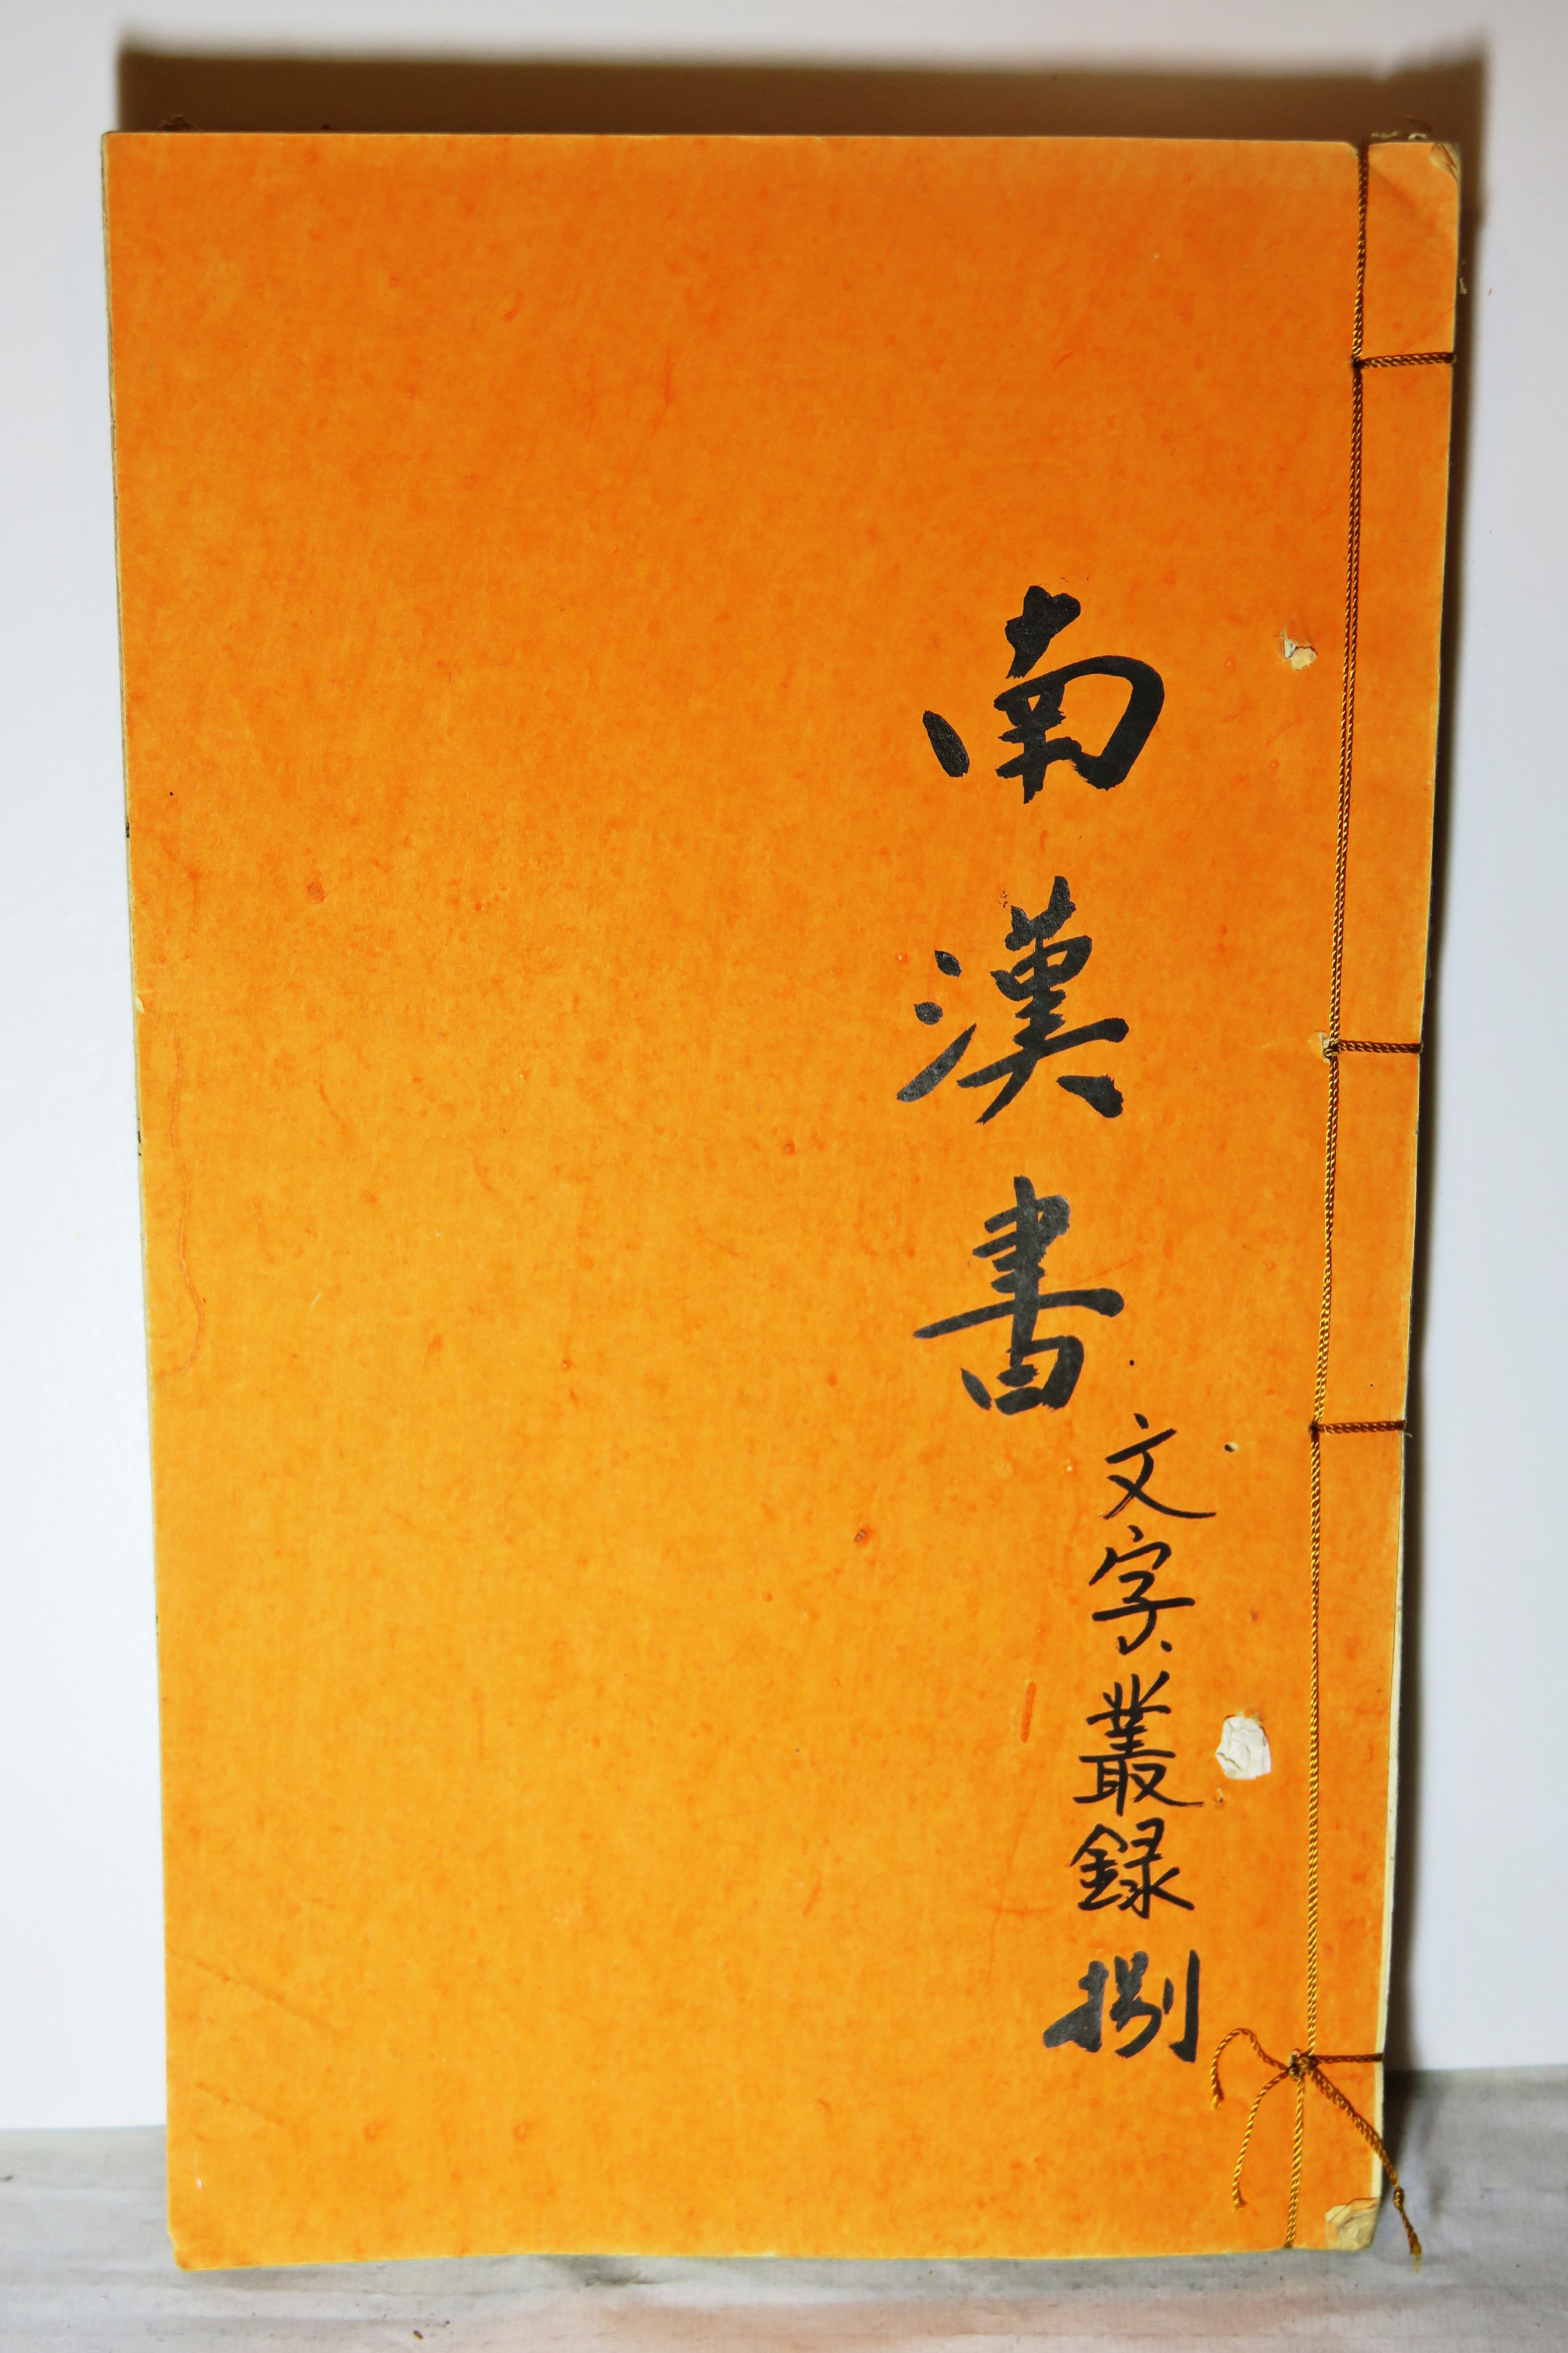 南漢書
文字叢録捌